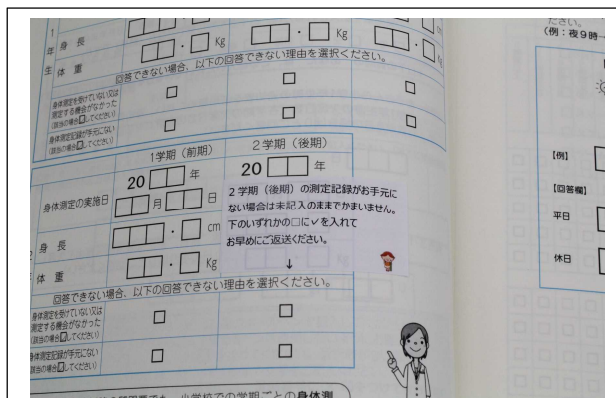 ださい。
(例：夜9時
1
年
生
身 長
cm
体 重
Kg
Kg
Kg
回答できない場合、以下の回答できない理由を選択ください。
身体測定を受けていない又は
測定する機会がなかった
(該当の場合☑してください)
身体測定記録が手元にない
(該当の場合☑してください)
1学期（前期）
2学期（後期）
身体測定の実施日
20 年
月 日
20 年
2学期（後期）の測定記録がお手元に
ない場合は未記入のままでかまいません。
下のいずれかの□に✓を入れて
お早めにご返送ください。
↓
身 長
cm
体 重
Kg
回答できない場合、以下の回答できない理由を選択ください。
身体測定を受けていない又は
測定する機会がなかった
(該当の場合☑してください)
身体測定記録が手元にない
(該当の場合☑してください)
小学校での学期ごとの身体測
【例】
【回答欄】
平日
休日